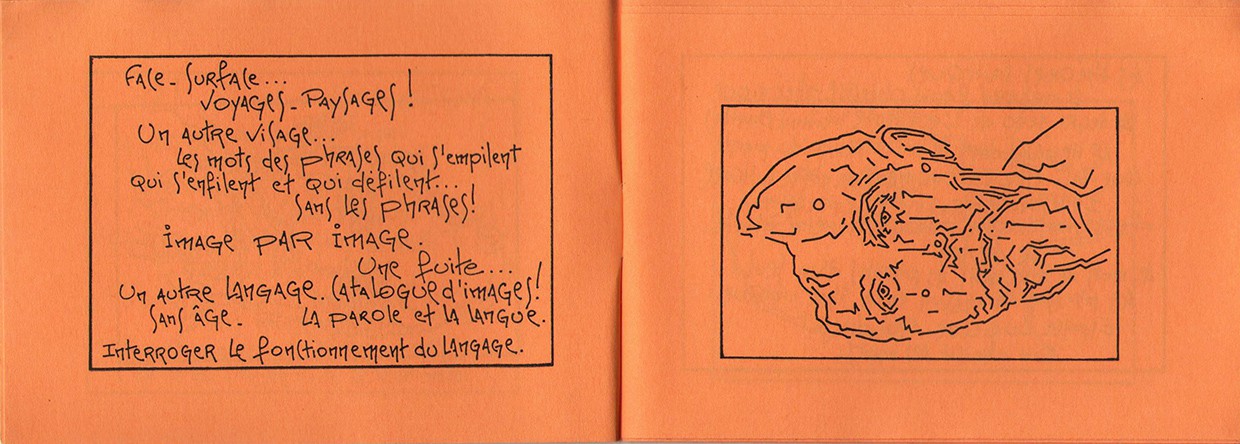 Face-Surface...
Voyages-Paysages !
Un autre visage...
Les mots des phrases qui s'empilent
qui s'enfilent et qui défilent...
sans les phrases!
Image par image.
Une fuite....
Un autre langage. Catalogue d'images!
Sans âge. La parole et la langue.
Interroger le fonctionnement du langage.